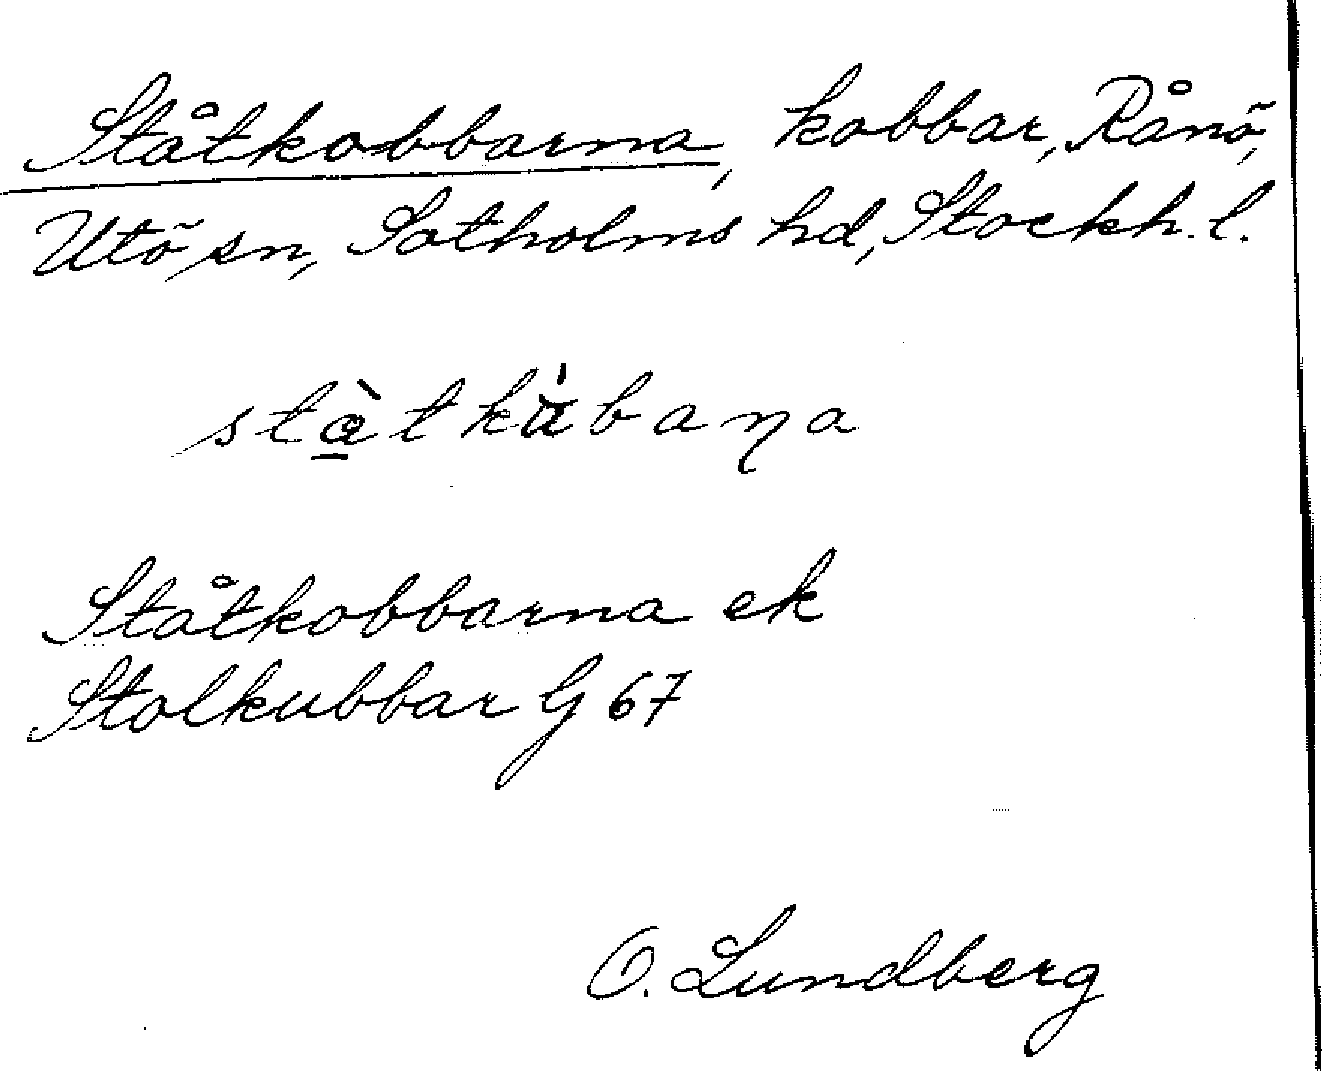 Ståtkobbarna, kobbar, Rånö,
Utö sn, Sotholms hd, Stockh. l.
stà̱tku̇̀baņa
Ståtkobbarna ek
Stolkubbar G 67
O. Lundberg